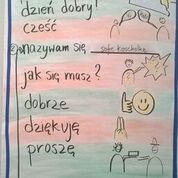 dzień dobry!
cześć
nazywam się
jak się masz?
dobrze
dziękuję
proszę